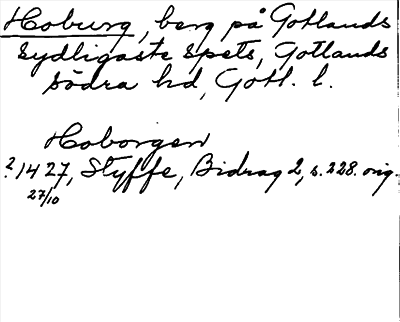 Hoburg, berg på Gotlands
sydligaste spets, Gotlands
södra hd, Gotl. l.
Hoborgen
?1427, Styffe, Bidrag 2, s. 228. orig.
27/10